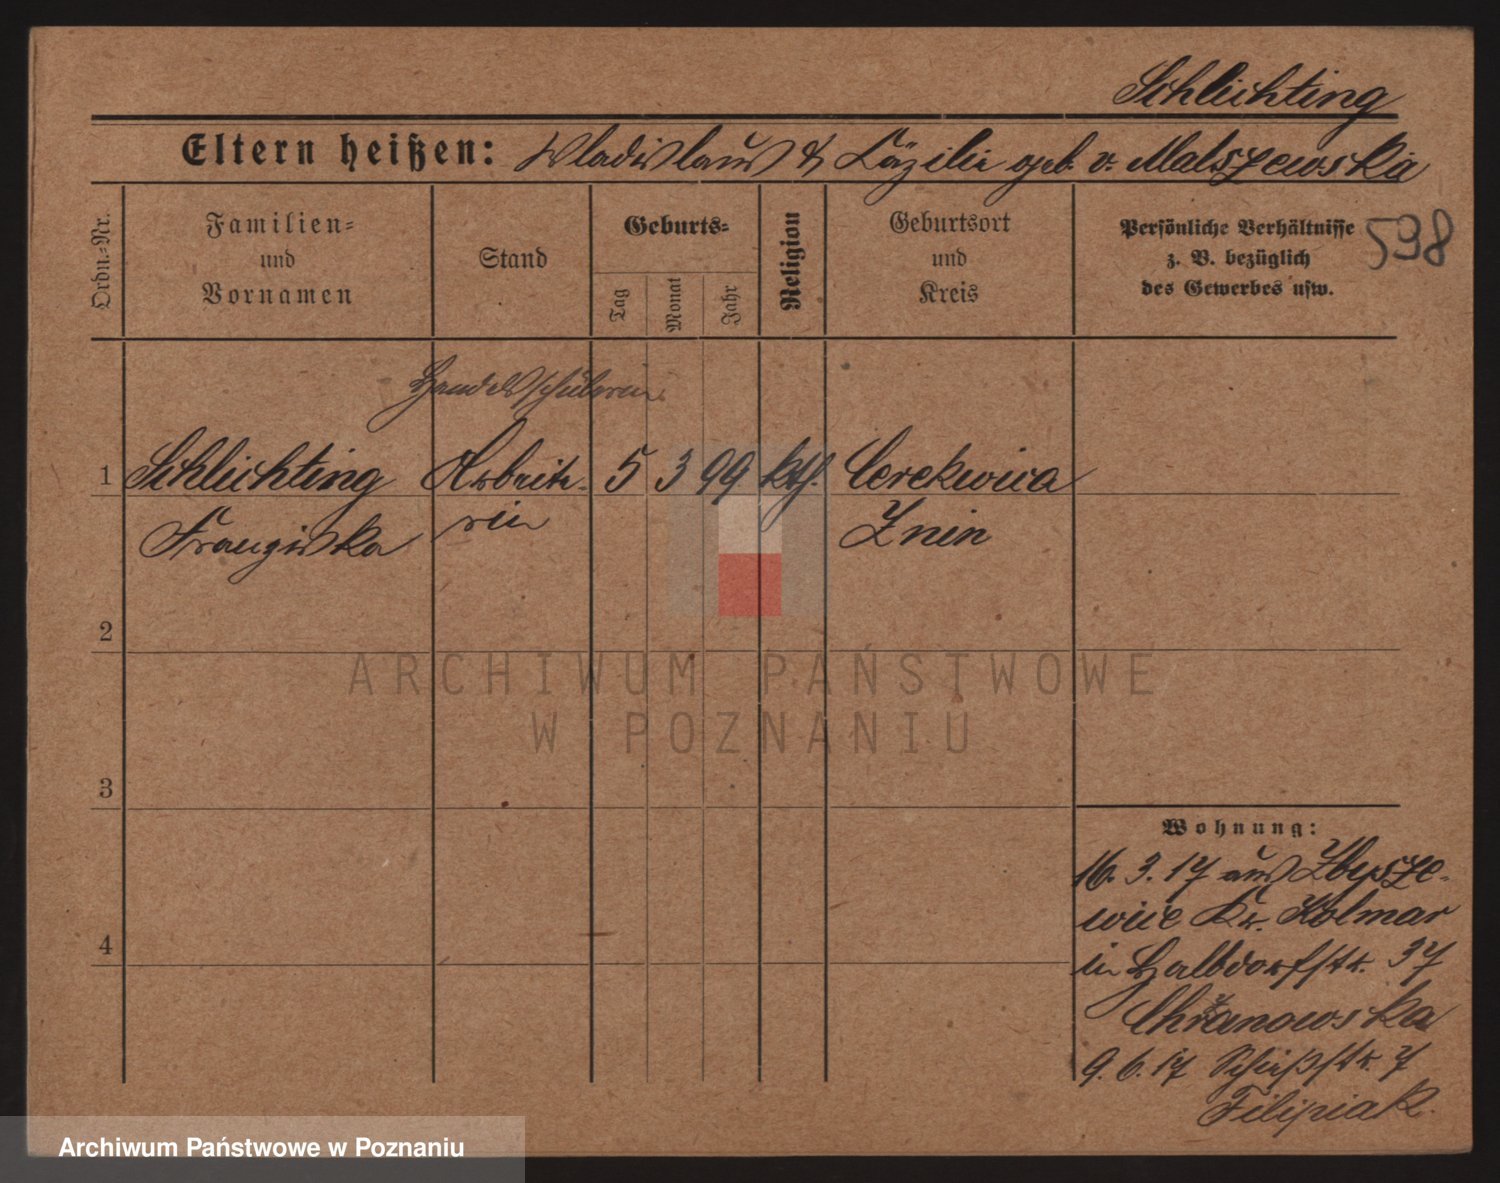 Schlichting
Eltern heißen: Wladislaus & Cäzilie geb. v. Malszewska
Ordn.-Nr.
Familien-
und
Vornamen
Stand
Geburts-
Tag
Monat
Jahr
Religion
Geburtsort
und
Kreis
Persönliche Verhältnisse
z. B. bezüglich
des Gewerbes usw.
598
Handelsschülerin
1 Schlichting Arbeite- 5 3 99 kth. Cerekwica
Franziska rin Znin
2
ARCHIWUM PAŃSTWOWE
W POZNANIU
3
Wohnung:
16. 3. 17 aus Zbysze-
wice Kr. Kolmar
4
in Halbdorfstr. 37
Chrzanowska
9. 6. 17 Schießstr. 7
Filipiak.
Archiwum Państwowe w Poznaniu